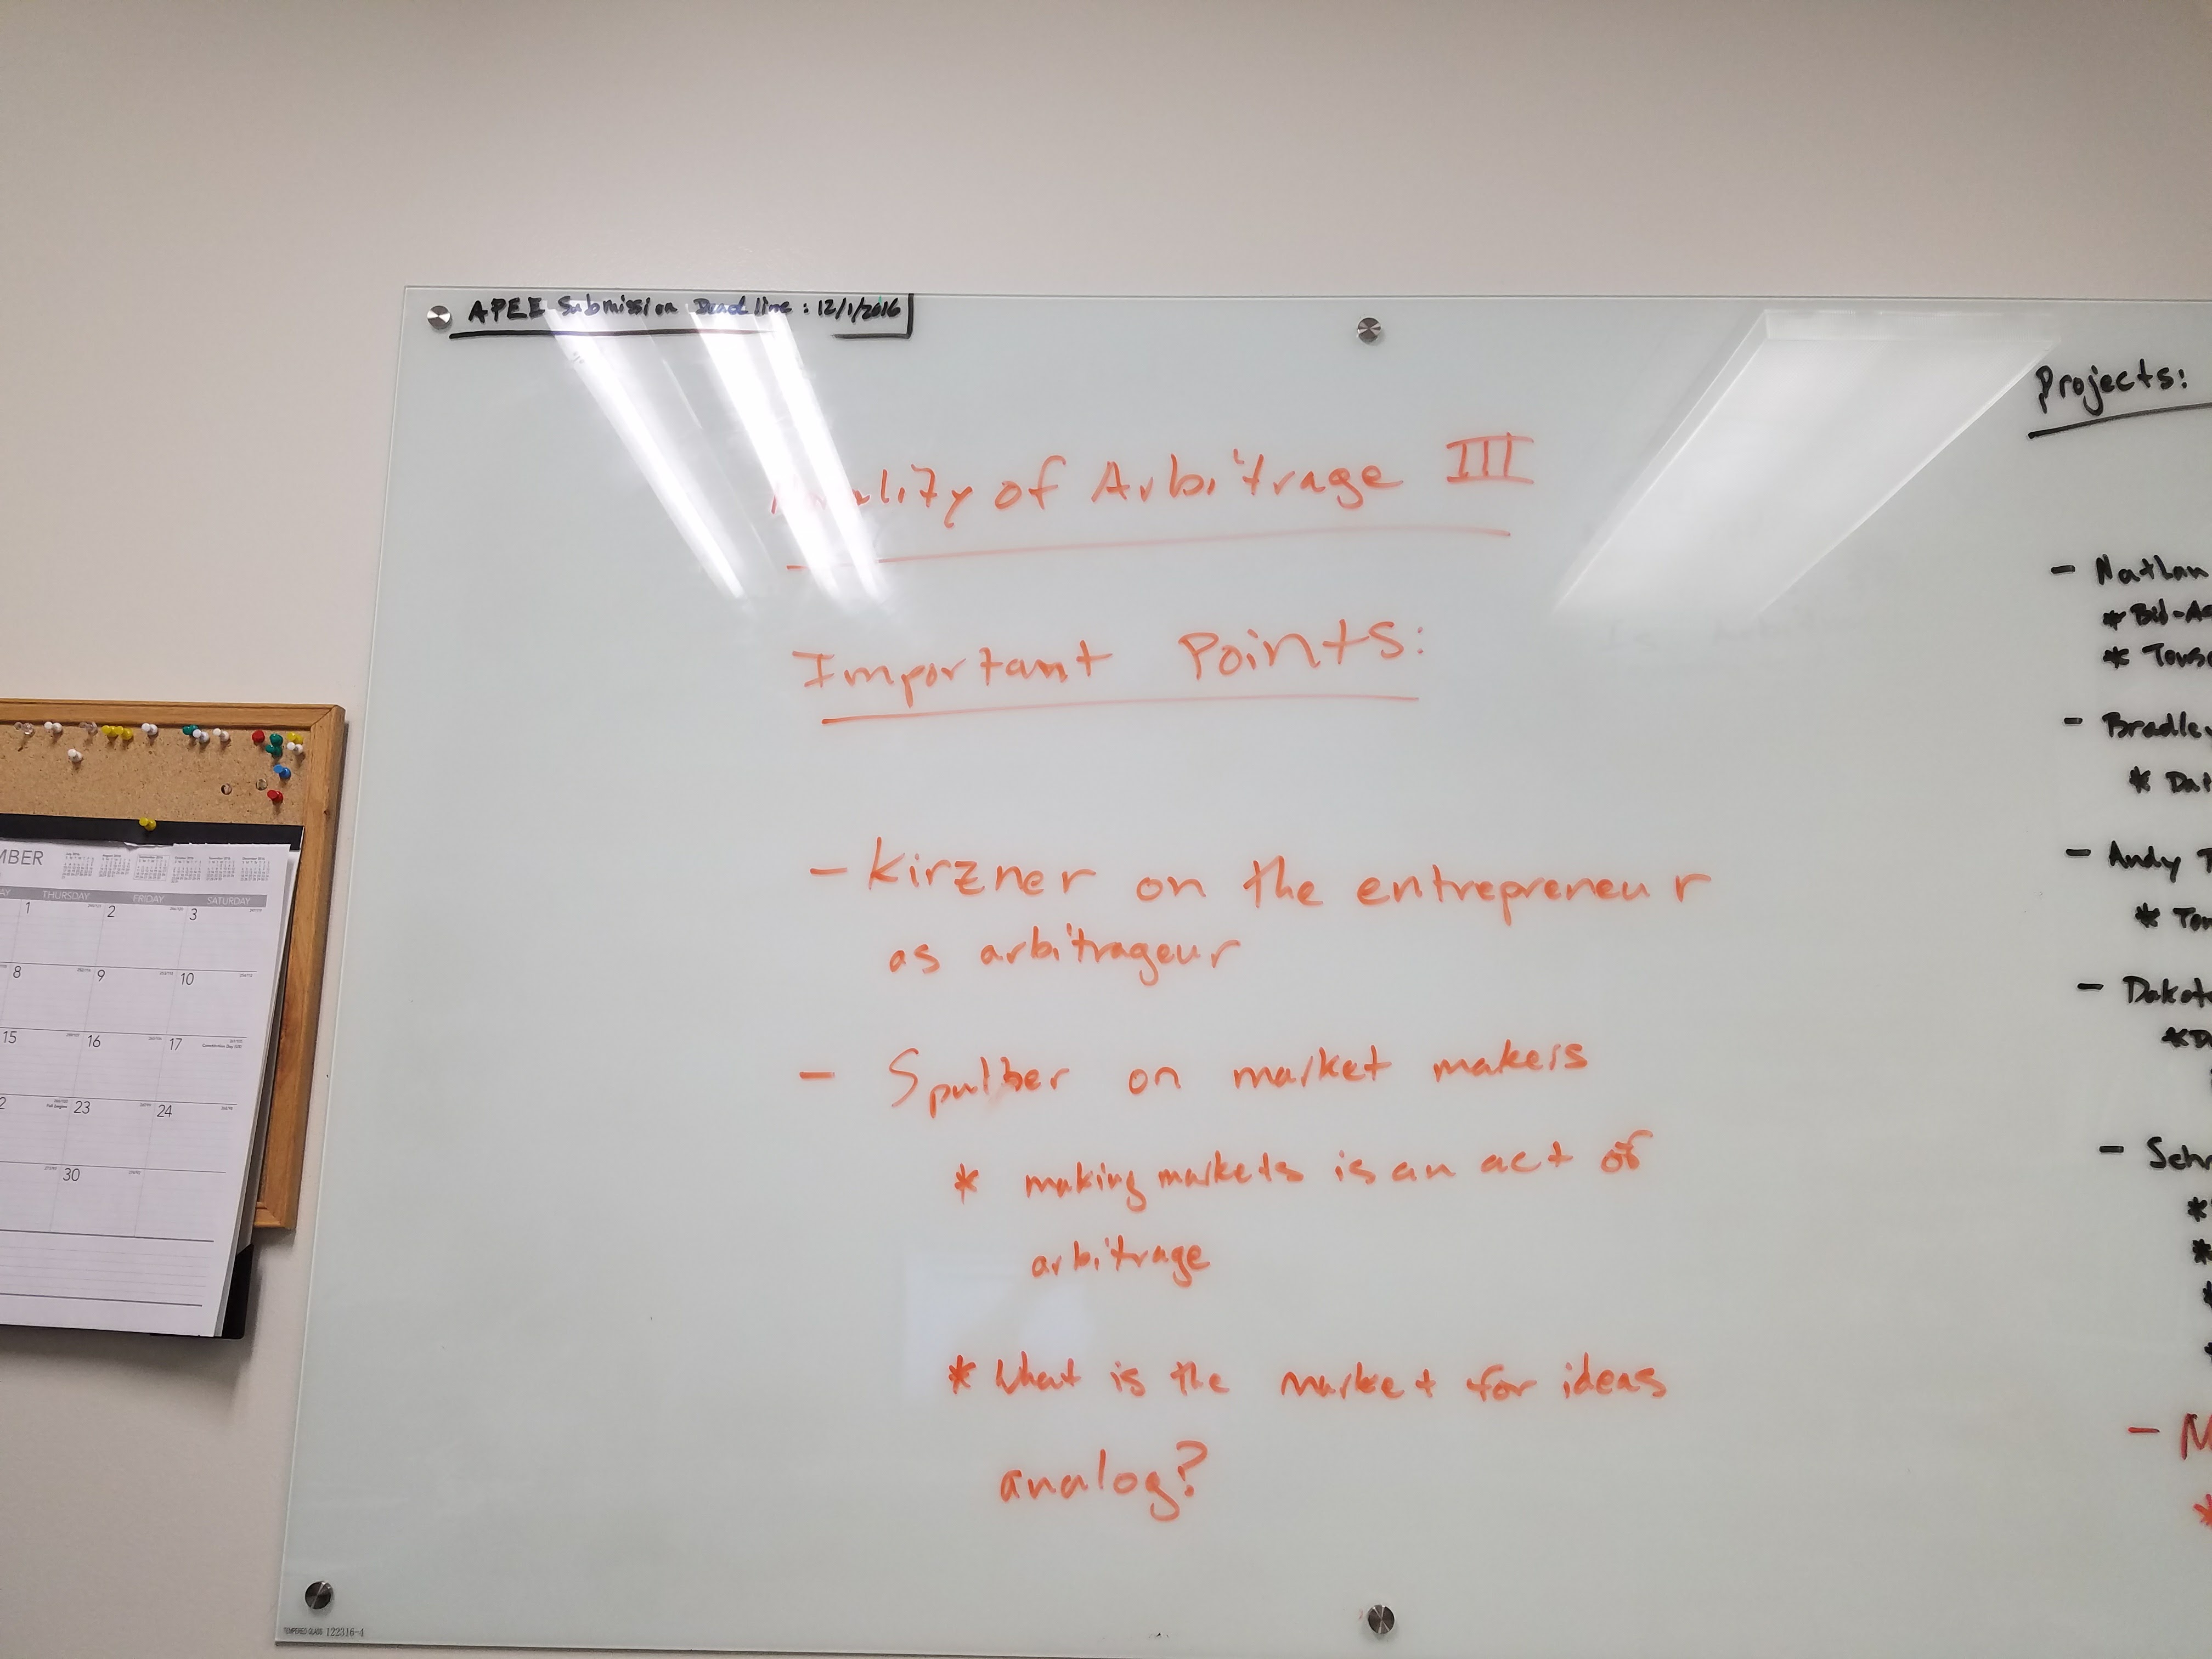 APEE Submission Deadline: 12/1/2016
of Arbitrage III
Important Points:
- Kirzner on the entrepreneur
as arbitrageur
- Spulber on market makers
* making markets is an act of
arbitrage
* What is the market for ideas
analog?
Projects:
- Nathan
* Bid-As
* Towso
- Bradley
* Dat
- Andy T
* Tow
- Dakota
* D
- Schr
- M
MBER
AY THURSDAY FRIDAY SATURDAY
1 2 3
8 9 10
15 16 17
Constitution Day (US)
2 23 24
30
TEMPERED GLASS 122316-4